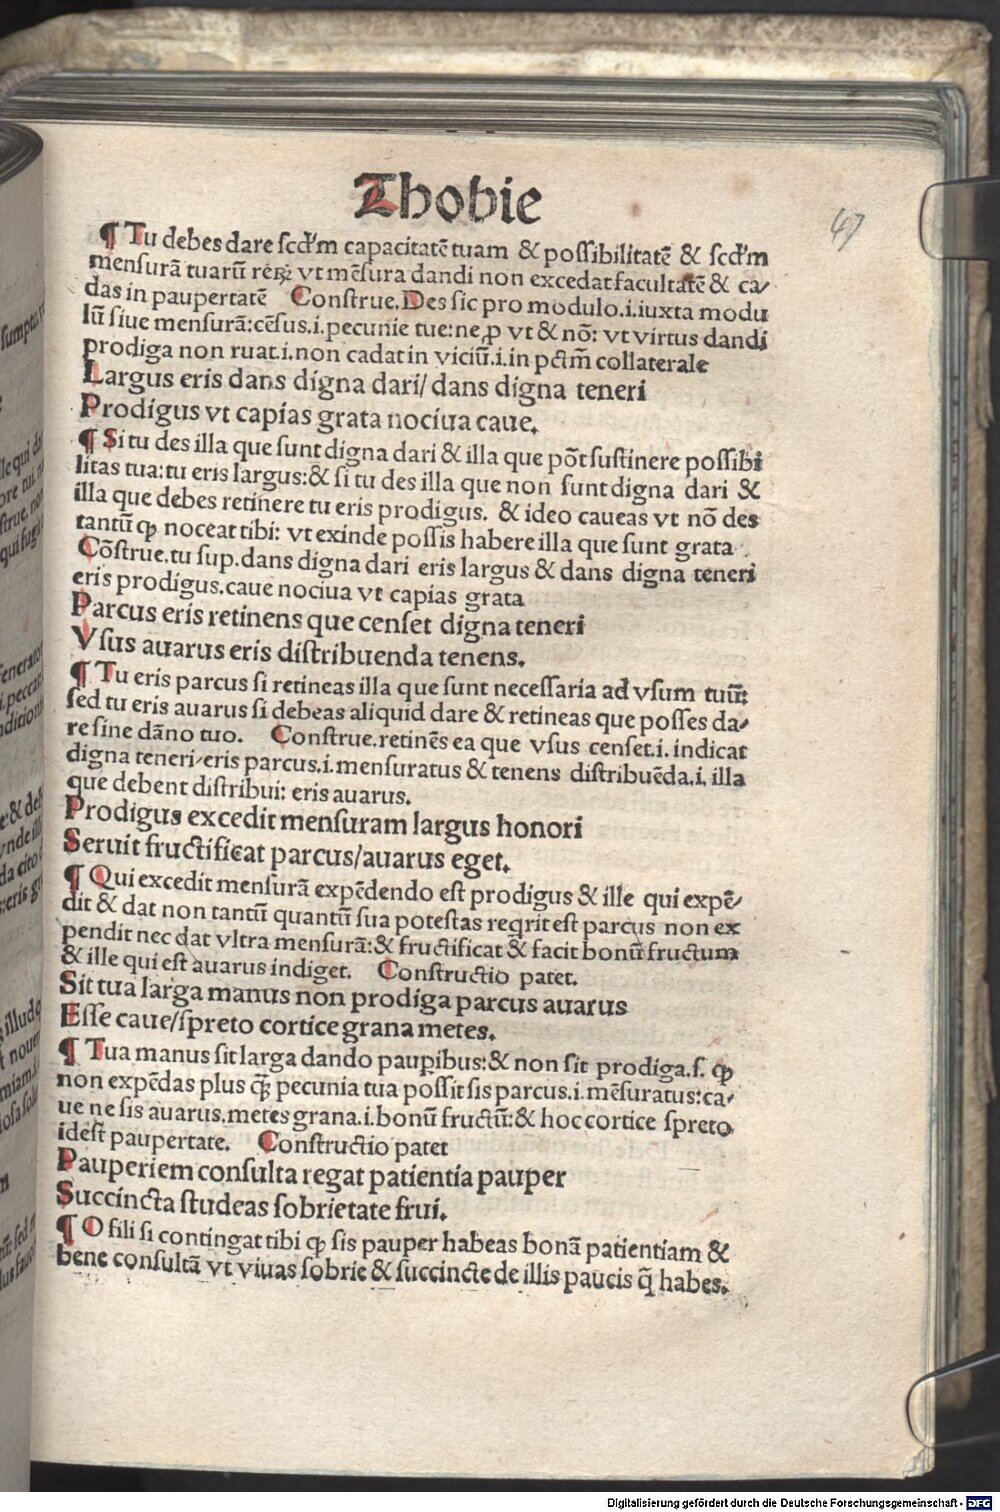 Thobie
47
¶ Tu debes dare scďm capacitatē tuam & possibilitatē & scďm
mensurā tuarū rerꝝ vt mēsura dandi non excedat facultatē & ca/
das in paupertatē Construe. Des sic pro modulo .i. iuxta modu
lū siue mensurā: cēsus .i. pecunie tue: ne ꝓ vt & nō: vt virtus dandi
prodiga non ruat .i. non cadat in viciū .i. in pctm̄ collaterale
Largus eris dans digna dari/ dans digna teneri
Prodigus vt capias grata nociua caue.
¶ Si tu des illa que sunt digna dari & illa que pōt sustinere possibi
litas tua: tu eris largus: & si tu des illa que non sunt digna dari &
illa que debes retinere tu eris prodigus. & ideo caueas vt nō des
tantū ꝙ noceat tibi: vt exinde possis habere illa que sunt grata
Cōstrue. tu sup. dans digna dari eris largus & dans digna teneri
eris prodigus. caue nociua vt capias grata
Parcus eris retinens que censet digna teneri
Vsus auarus eris distribuenda tenens.
¶ Tu eris parcus si retineas illa que sunt necessaria ad vsum tuū:
sed tu eris auarus si debeas aliquid dare & retineas que posses da/
re sine dāno tuo. Construe. retinēs ea que vsus censet .i. indicat
digna teneri/ eris parcus .i. mensuratus & tenens distribuēda .i. illa
que debent distribui: eris auarus.
Prodigus excedit mensuram largus honori
Seruit fructificat parcus/ auarus eget.
¶ Qui excedit mensurā expēdendo est prodigus & ille qui expē/
dit & dat non tantū quantū sua potestas reqrit est parcus non ex
pendit nec dat vltra mensurā: & fructificat & facit bonū fructum
& ille qui est auarus indiget. Constructio patet.
Sit tua larga manus non prodiga parcus auarus
Esse caue/ spreto cortice grana metes.
¶ Tua manus sit larga dando paupibus: & non sit prodiga .s. ꝙ
non expēdas plus ꝙ̄ pecunia tua possit sis parcus .i. mēsuratus: ca/
ue ne sis auarus. metes grana .i. bonū fructū: & hoc cortice spreto
idest paupertate. Constructio patet
Pauperiem consulta regat patientia pauper
Succincta studeas sobrietate frui.
¶ O fili si contingat tibi ꝙ sis pauper habeas bonā patientiam &
bene consultā vt viuas sobrie & succincte de illis paucis q̄ habes.
Digitalisierung gefördert durch die Deutsche Forschungsgemeinschaft - DFG